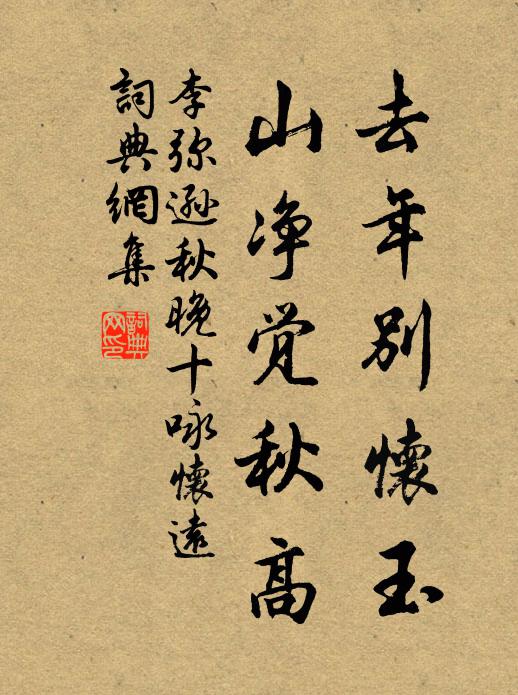 去年別懷玉
山净覺秋高
李弥遜秋晚十咏懷遠
詞典網集
詞典
网印